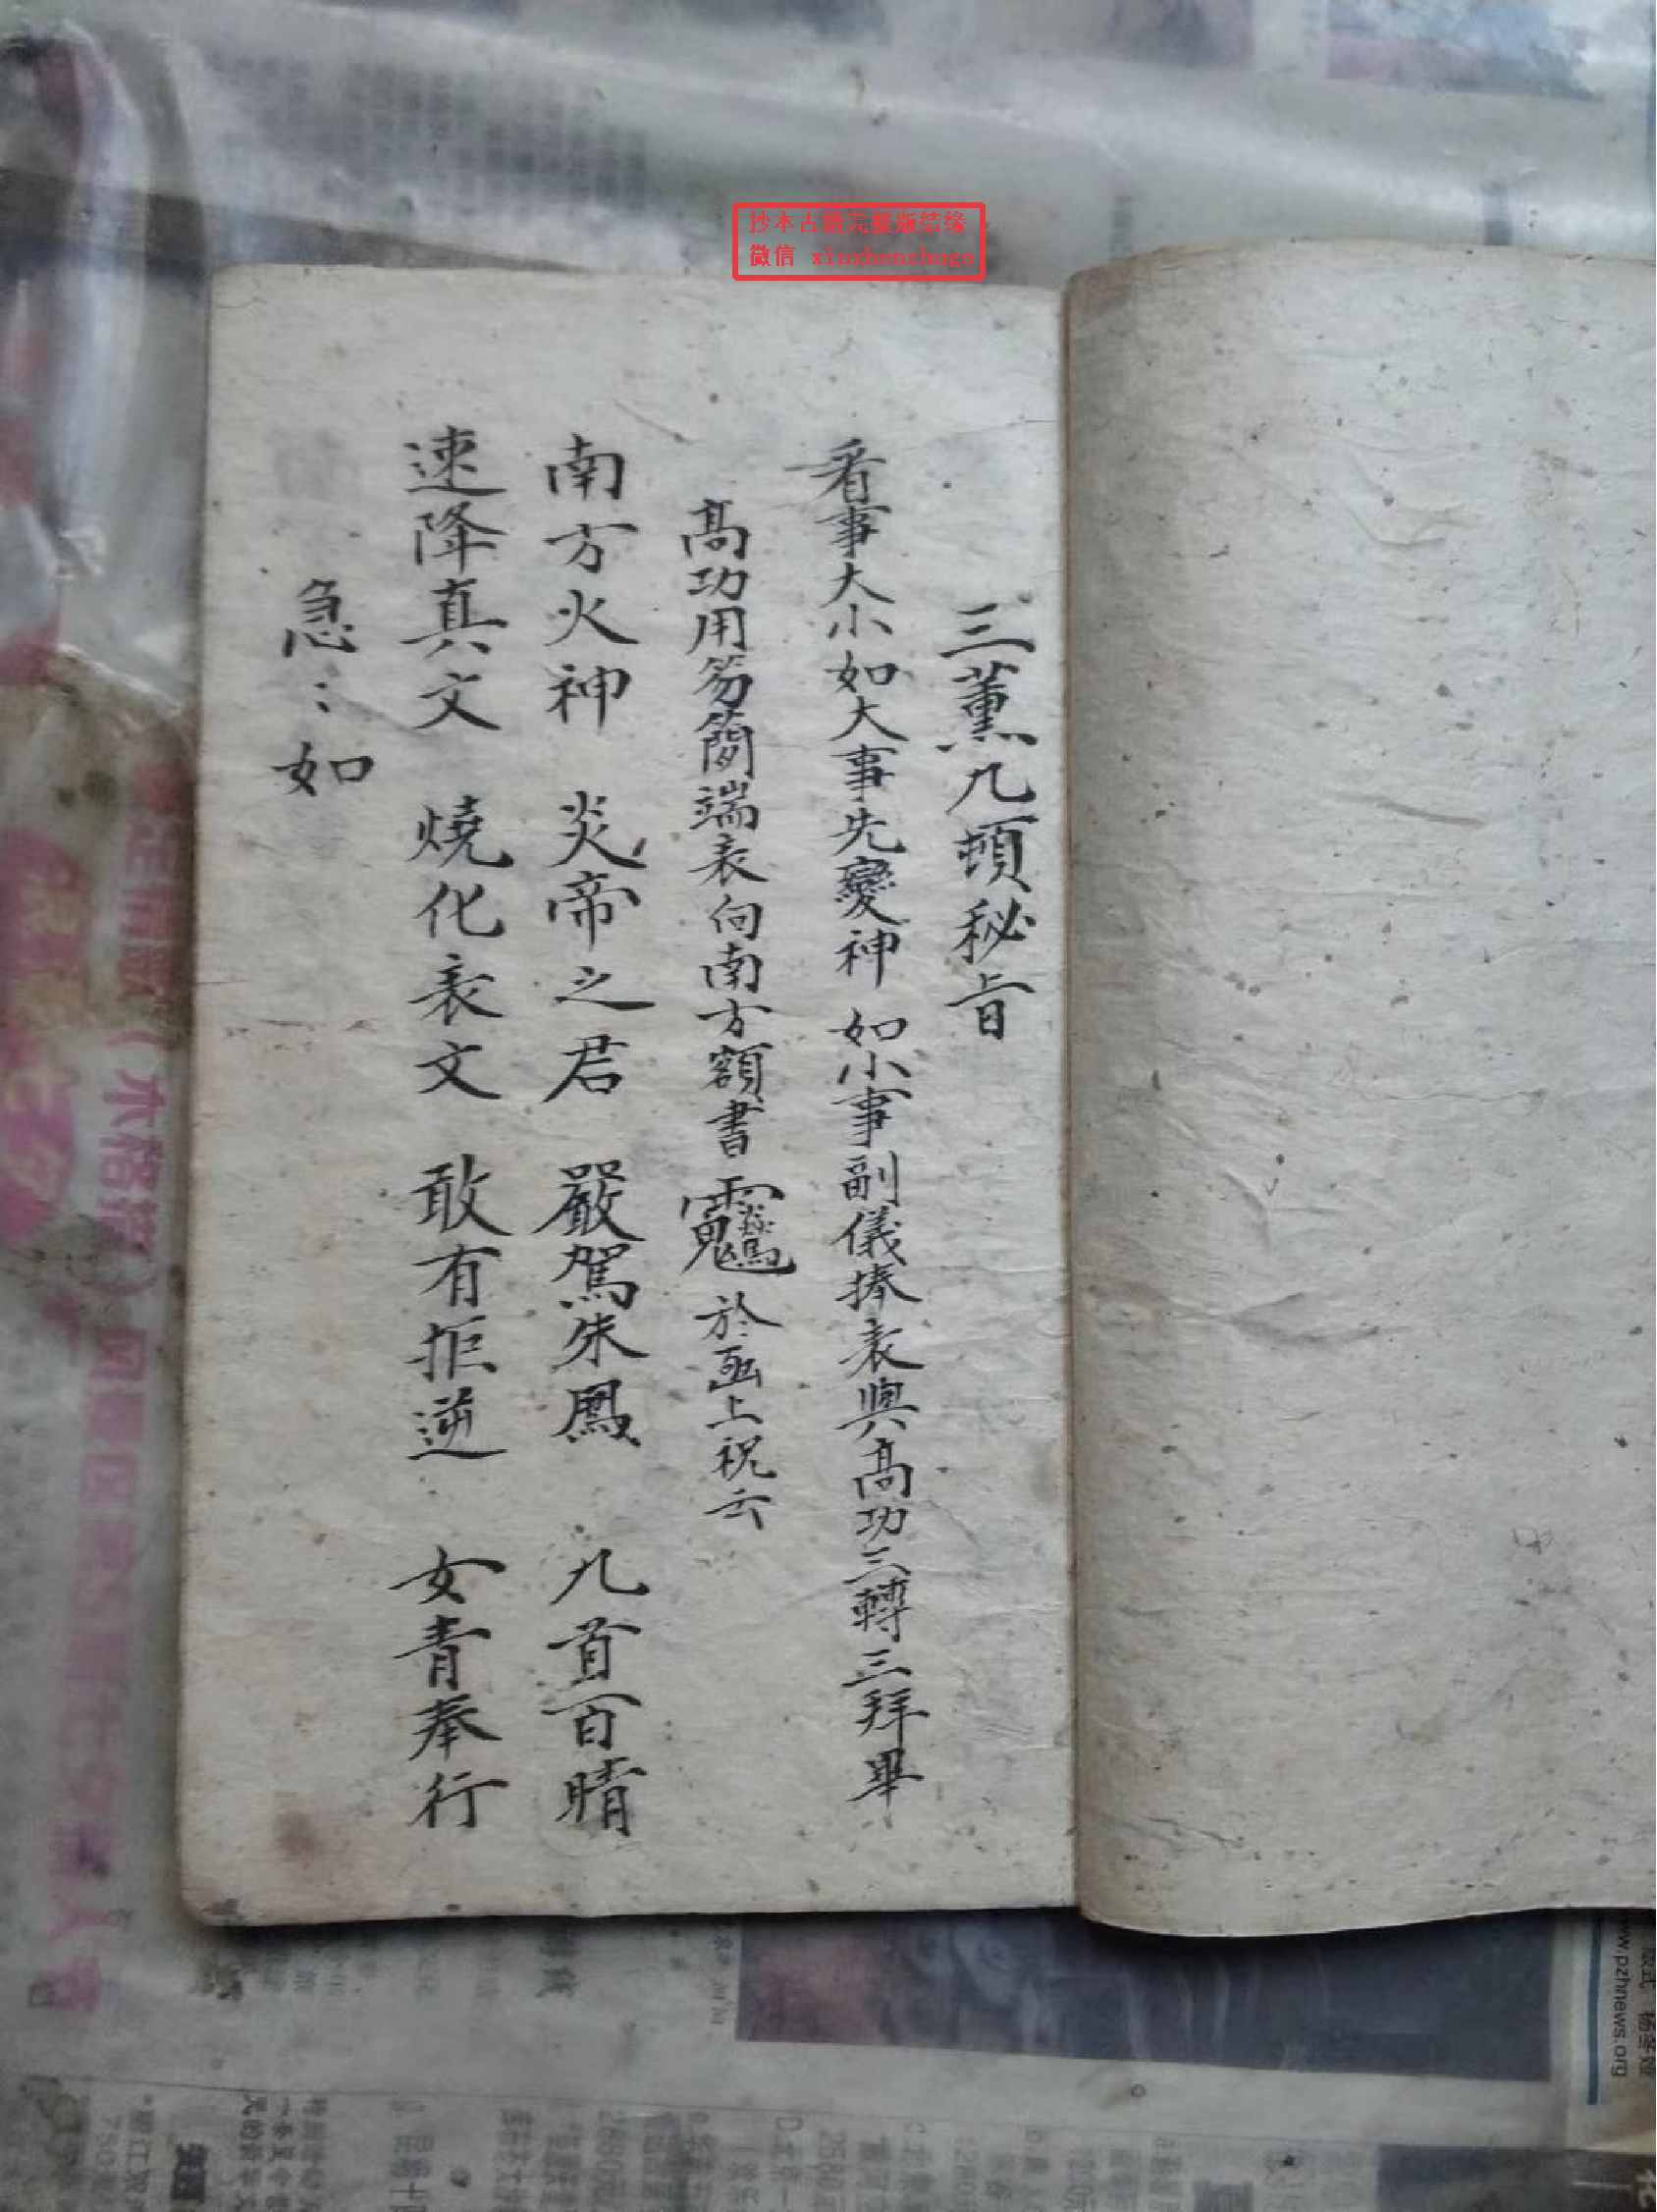 抄本古籍完整版结缘
微信 xiuzhenshuge
三薰九頓秘旨
看事大小如大事先變神 如小事副儀捧表與髙功三轉三拜畢
髙功用笏簡端表向南方額書 於函上祝云
南方火神 炎帝之君 嚴駕朱鳳 九首百睛
速降真文 燒化表文 敢有拒逆 女青奉行
急〻如
www.pzhnews.org